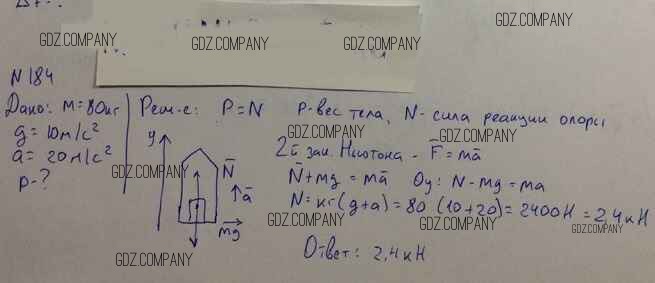 GDZ.COMPANY GDZ.COMPANY GDZ.COMPANY
N 184
Дано: m=80кг
g=10м/с²
a=20м/с²
P-?
Реш-е: P=N P-вес тела, N-сила реакции опоры
GDZ.COMPANY
GDZ.COMPANY
2й зак. Ньютона - F̄=mā
y N̄ ā mg
GDZ.COMPANY
N̄+mg=mā Oy: N-mg=ma
N=кг(g+a)=80(10+20)=2400Н=2,4кН
GDZ.COMPANY GDZ.COMPANY GDZ.COMPANY
Ответ: 2,4кН
GDZ.COMPANY